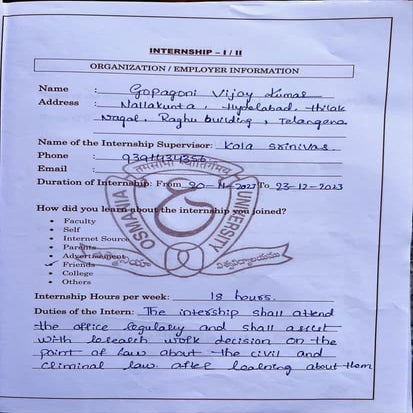 INTERNSHIP – I / II
ORGANIZATION / EMPLOYER INFORMATION
Name : Gopagoni Vijay Kumar
Address : Nallakunta, Hyderabad, thilak
Nagar, Raghu building, Telangana
Name of the Internship Supervisor: Kola Srinivas.
Phone :
Email :
Duration of Internship: From 20-11-2023 To 23-12-2023
How did you learn about the internship you joined?
• Faculty
• Self
• Internet Source
• Parents
• Advertisement
✓ Friends
• College
• Others
OSMANIA UNIVERSITY
Internship Hours per week: 18 hours.
Duties of the Intern: The intership shall attend
the office regulary and shall assist
with research work decision on the
point of law about the civil and
criminal law after learning about them